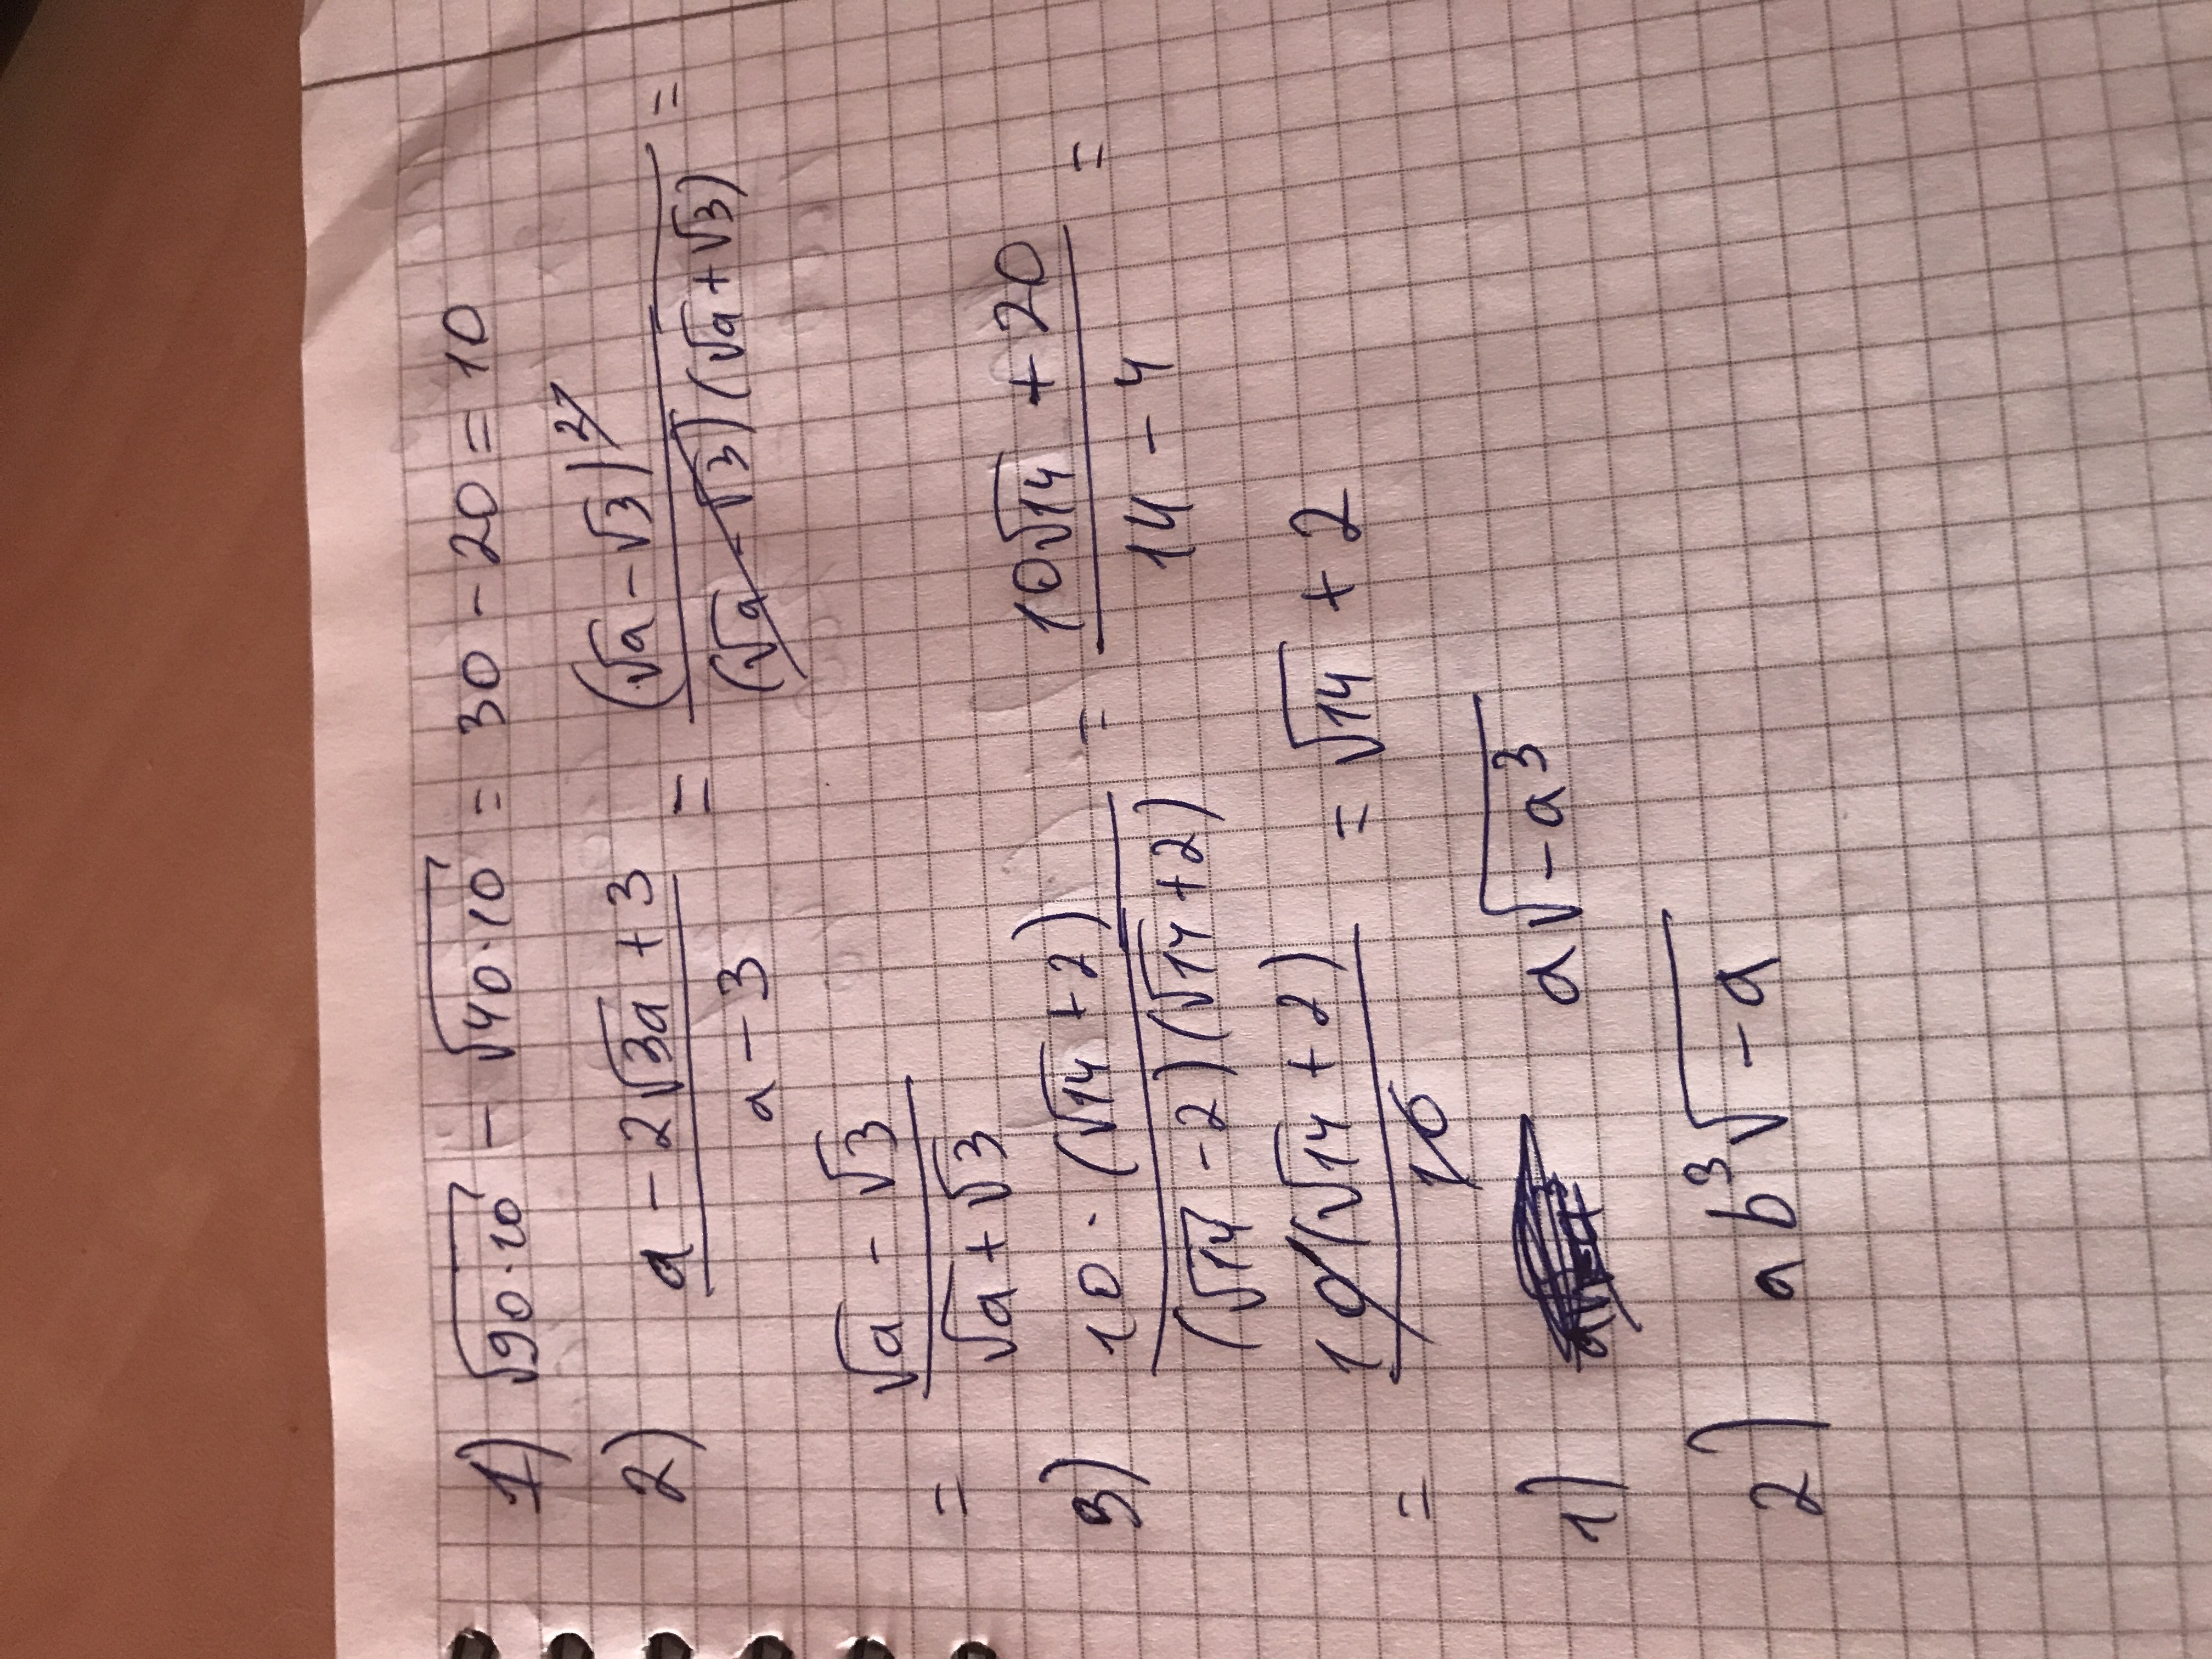 1) √90·10 - √40·10 = 30 - 20 = 10
2) (a - 2√3a + 3)/(a - 3) = (√a - √3)²/((√a - √3)(√a + √3)) =
= (√a - √3)/(√a + √3)
3) 10·(√14 + 2)/((√14 - 2)(√14 + 2)) = (10√14 + 20)/(14 - 4) =
= 10(√14 + 2)/10 = √14 + 2
1) a√-a³
2) ab³√-a